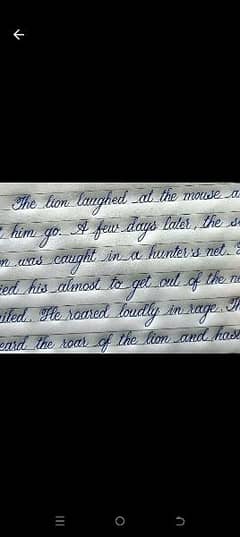 The lion laughed at the mouse a
him go. A few days later, the s
n was caught in a hunter's net.
ied his almost to get out of the ne
iled. He roared loudly in rage. Th
eard the roar of the lion and hast